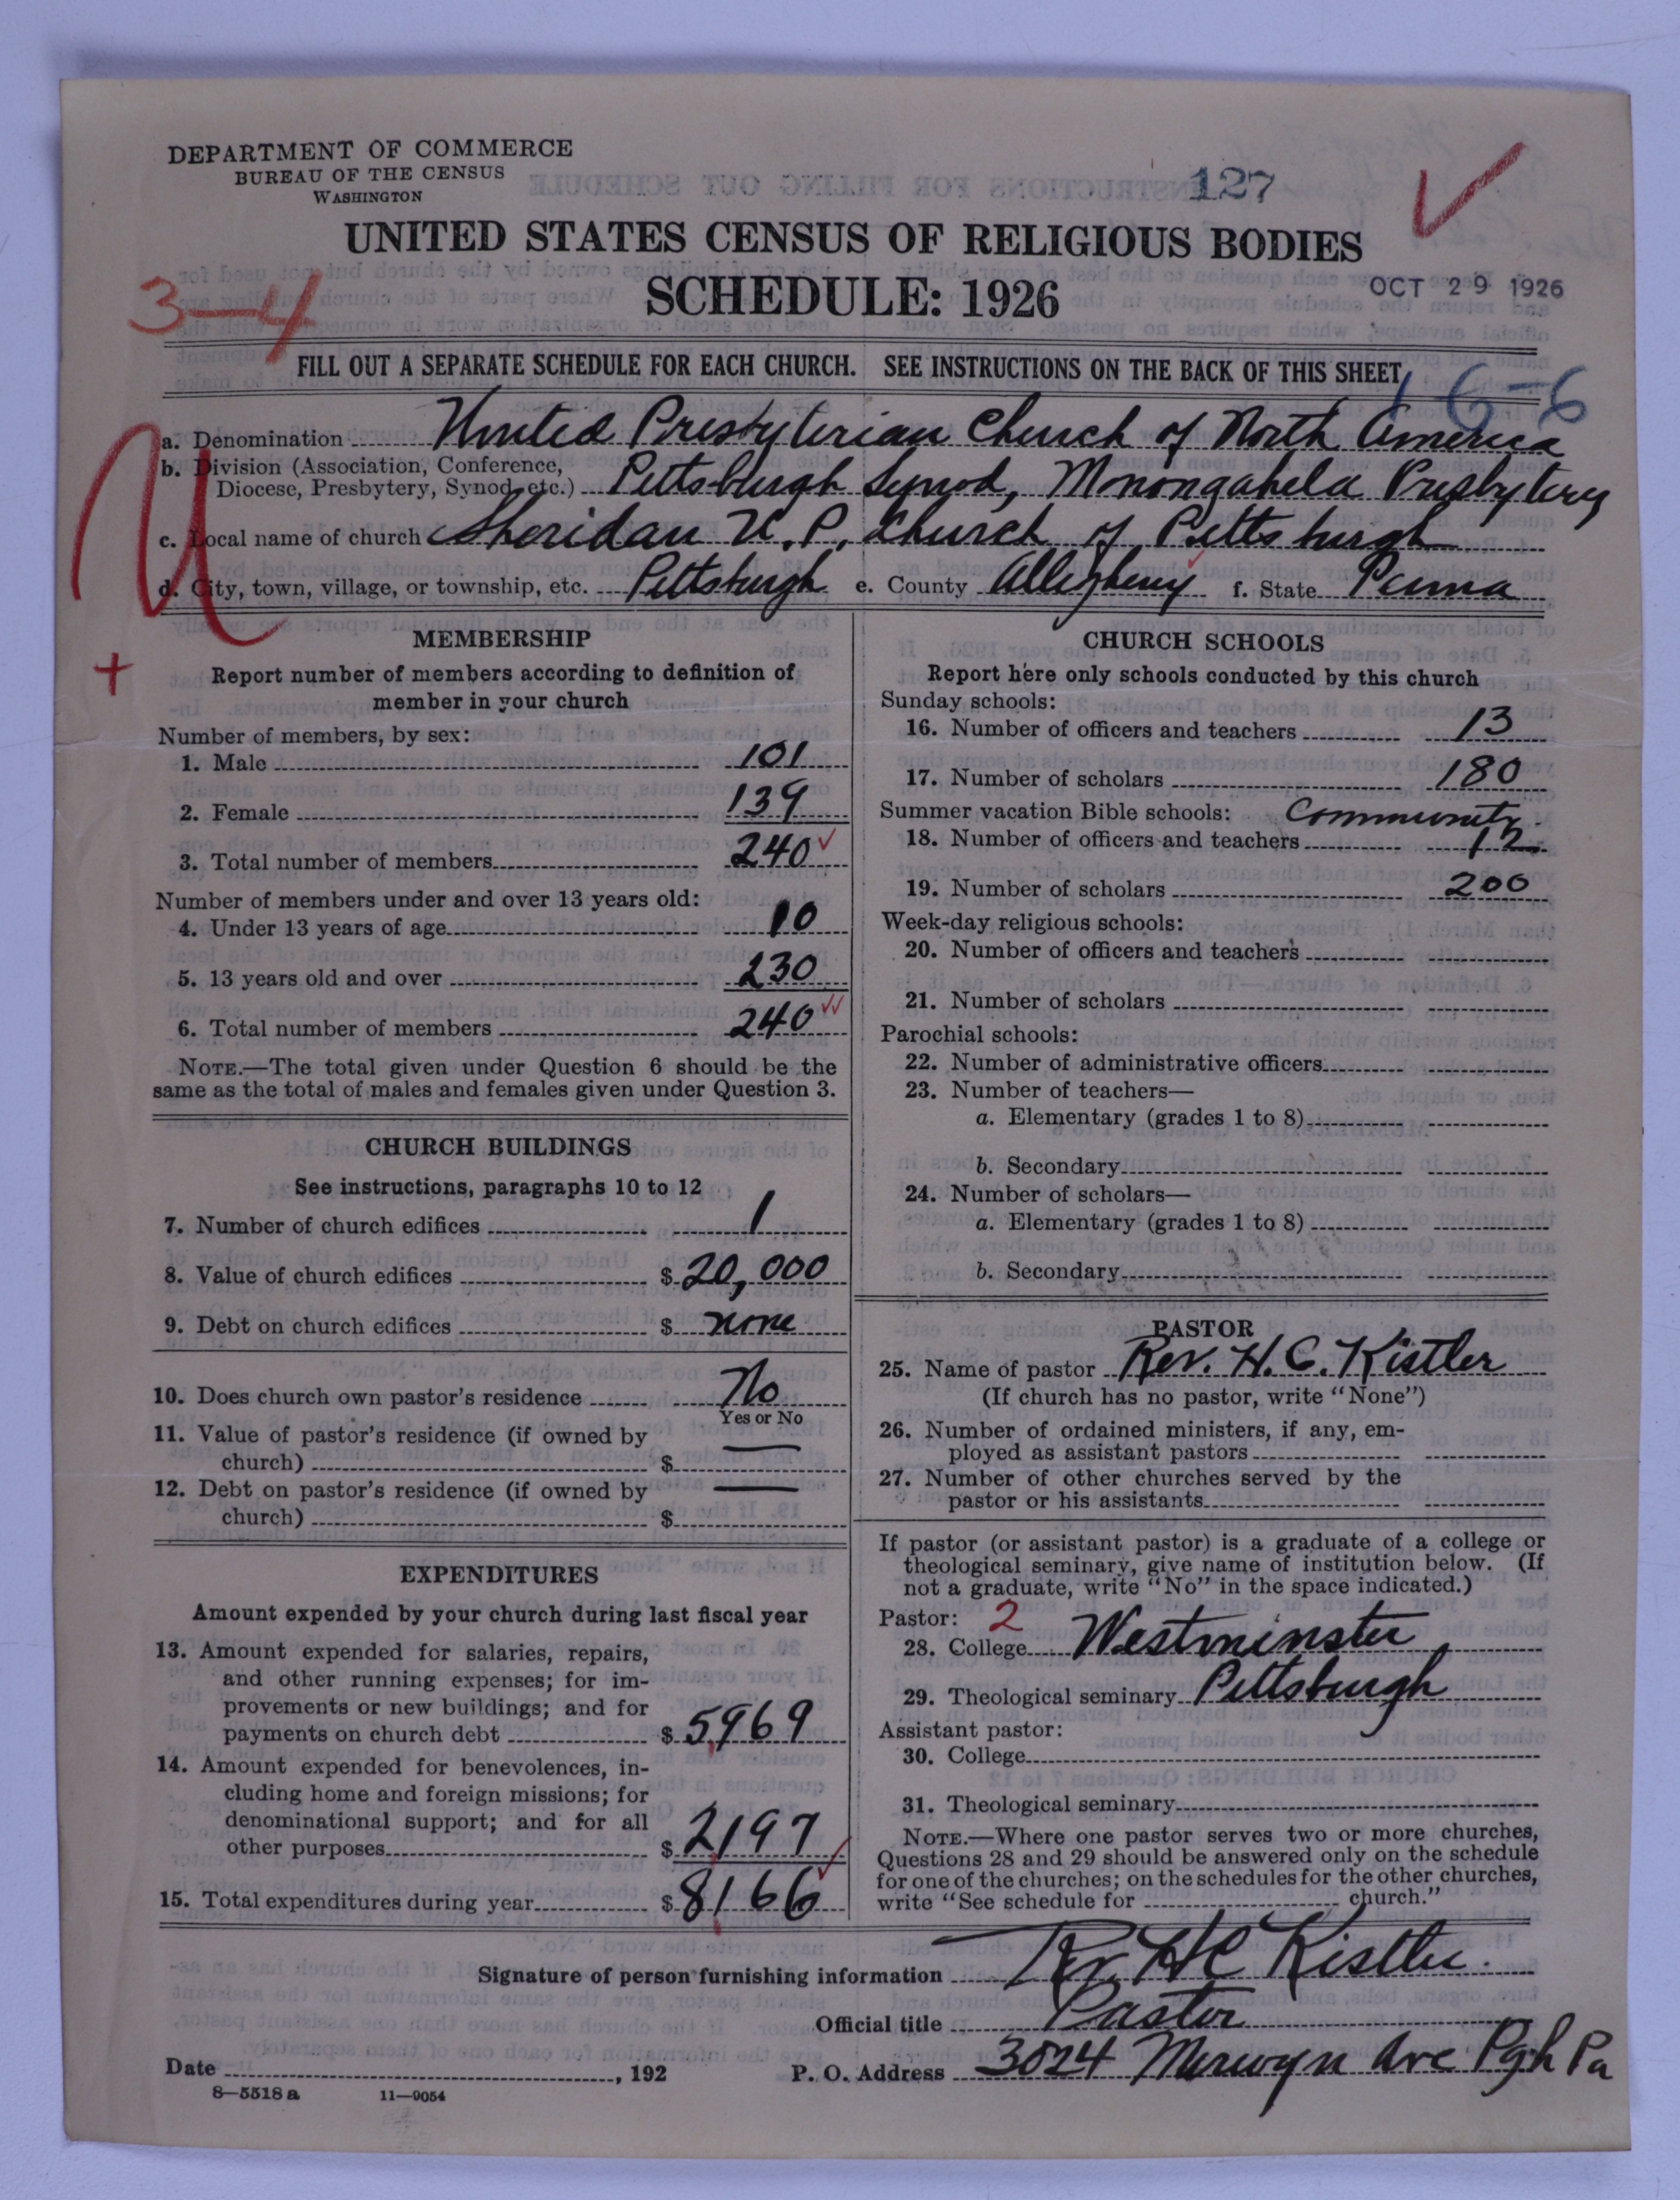 DEPARTMENT OF COMMERCE
BUREAU OF THE CENSUS
WASHINGTON
127
UNITED STATES CENSUS OF RELIGIOUS BODIES
SCHEDULE: 1926
OCT 29 1926
3-4
FILL OUT A SEPARATE SCHEDULE FOR EACH CHURCH. SEE INSTRUCTIONS ON THE BACK OF THIS SHEET
16-6
a. Denomination United Presbyterian Church of North America
b. Division (Association, Conference,
Diocese, Presbytery, Synod, etc.) Pittsburgh Synod, Monongahela Presbytery
c. Local name of church Sheridan U.P. Church of Pittsburgh
d. City, town, village, or township, etc. Pittsburgh e. County Allegheny f. State Penna
MEMBERSHIP
Report number of members according to definition of
member in your church
Number of members, by sex:
1. Male 101
2. Female 139
3. Total number of members 240
Number of members under and over 13 years old:
4. Under 13 years of age 10
5. 13 years old and over 230
6. Total number of members 240
NOTE.—The total given under Question 6 should be the
same as the total of males and females given under Question 3.
CHURCH BUILDINGS
See instructions, paragraphs 10 to 12
7. Number of church edifices 1
8. Value of church edifices $ 20,000
9. Debt on church edifices $ none
10. Does church own pastor's residence No
Yes or No
11. Value of pastor's residence (if owned by
church) $ —
12. Debt on pastor's residence (if owned by
church) $ —
EXPENDITURES
Amount expended by your church during last fiscal year
13. Amount expended for salaries, repairs,
and other running expenses; for im-
provements or new buildings; and for
payments on church debt $ 5969
14. Amount expended for benevolences, in-
cluding home and foreign missions; for
denominational support; and for all
other purposes $ 2197
15. Total expenditures during year $ 8166
CHURCH SCHOOLS
Report here only schools conducted by this church
Sunday schools:
16. Number of officers and teachers 13
17. Number of scholars 180
Summer vacation Bible schools: Community
18. Number of officers and teachers 12
19. Number of scholars 200
Week-day religious schools:
20. Number of officers and teachers
21. Number of scholars
Parochial schools:
22. Number of administrative officers
23. Number of teachers—
a. Elementary (grades 1 to 8)
b. Secondary
24. Number of scholars—
a. Elementary (grades 1 to 8)
b. Secondary
PASTOR
25. Name of pastor Rev. H. C. Kistler
(If church has no pastor, write "None")
26. Number of ordained ministers, if any, em-
ployed as assistant pastors
27. Number of other churches served by the
pastor or his assistants
If pastor (or assistant pastor) is a graduate of a college or
theological seminary, give name of institution below. (If
not a graduate, write "No" in the space indicated.)
Pastor: 2
28. College Westminster
29. Theological seminary Pittsburgh
Assistant pastor:
30. College
31. Theological seminary
NOTE.—Where one pastor serves two or more churches,
Questions 28 and 29 should be answered only on the schedule
for one of the churches; on the schedules for the other churches,
write "See schedule for church."
Signature of person furnishing information Rev HC Kistler.
Official title Pastor
Date , 192 P. O. Address 3024 Merwyn Ave Pgh Pa
8-5518 a 11-9054